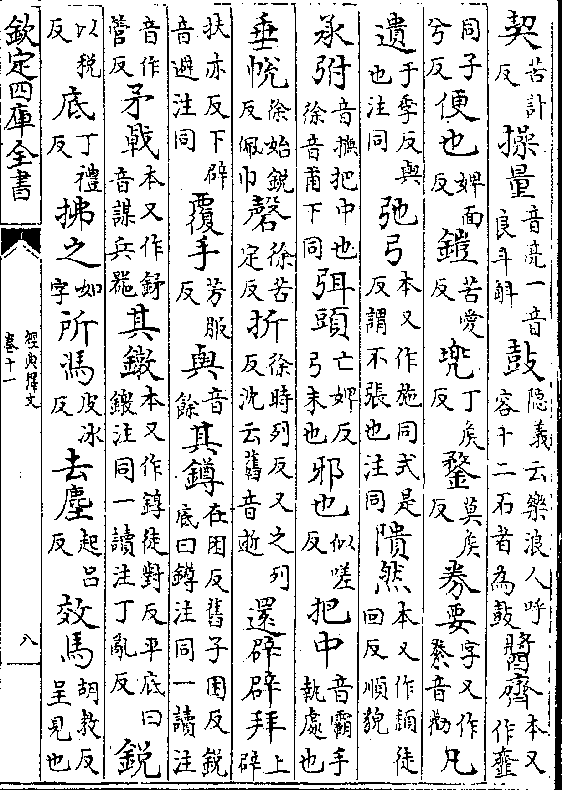 契苦計反操量音亮一音良斗斛鼓隐義云樂浪人呼容十二石者為鼓醬齊本又作齏
同子兮反便也婢面反鎧苦愛反兜丁矦反鍪莫矦反劵要字又作絭音勸凡
遺于季反與也注同弛弓本又作施同式是反謂不張也注同隤然本又作頽徒回反順貌
承弣音撫把中也徐音甫下同弭頭亡婢反弓末也邪也似嗟反把中音霸手執處也
垂帨徐始鋭反佩巾磬徐苦定反折徐時列反又之列反沈云舊音逝還辟辟拜上辟
扶亦反下辟音避注同覆手芳服反與音餘其鐏在困反舊子困反鋭底曰鐏注同一讀注
音作管反矛戟本又作鉾音謀兵器其鐓本又作錞徒對反平底曰鐓注同一讀注丁亂反鋭
以税反底丁禮反拂之如字所馮皮冰反去塵起吕反效馬胡教反呈見也
欽定四庫全書
經典釋文
卷十一
八